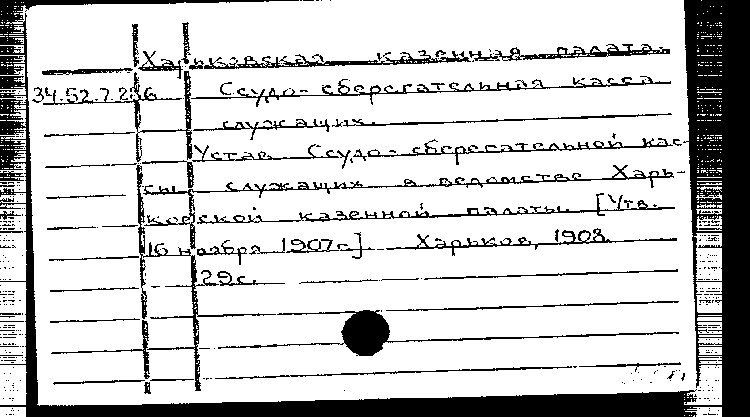 Харьковская казенная палата.
34.52.7.286 Ссудо-сберегательная касса
служащих.
Устав Ссудо-сберегательной кас-
сы служащих в ведомстве Харь-
ковской казенной палаты. [Утв.
16 ноября 1907г.]. Харьков, 1908.
29с.